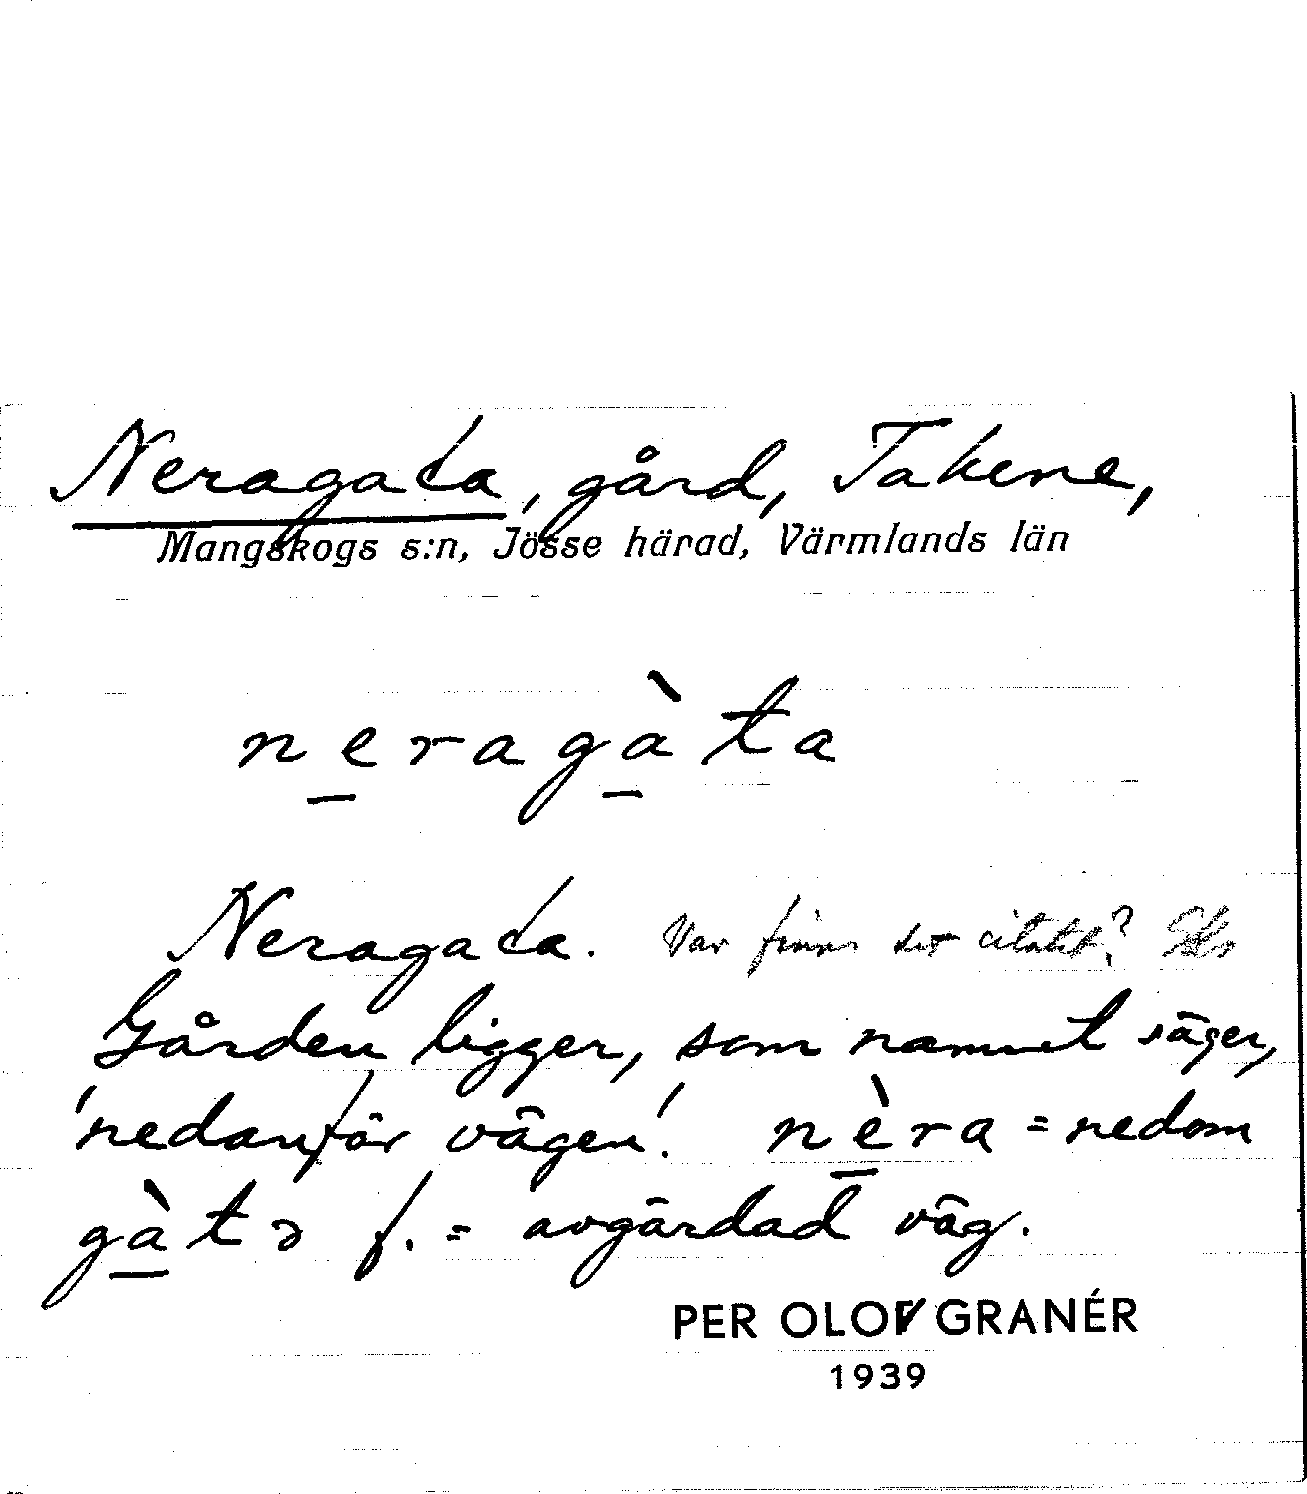 Neragata, gård, Takene,
Mangskogs s:n, Jösse härad, Värmlands län
neragàta
Neragata. Var finns det citatet?
Gården ligger, som namnet säger,
'nedanför vägen'. nèra = nedom
gàtə f. = avgärdad väg.
PER OLOV GRANÉR
1939